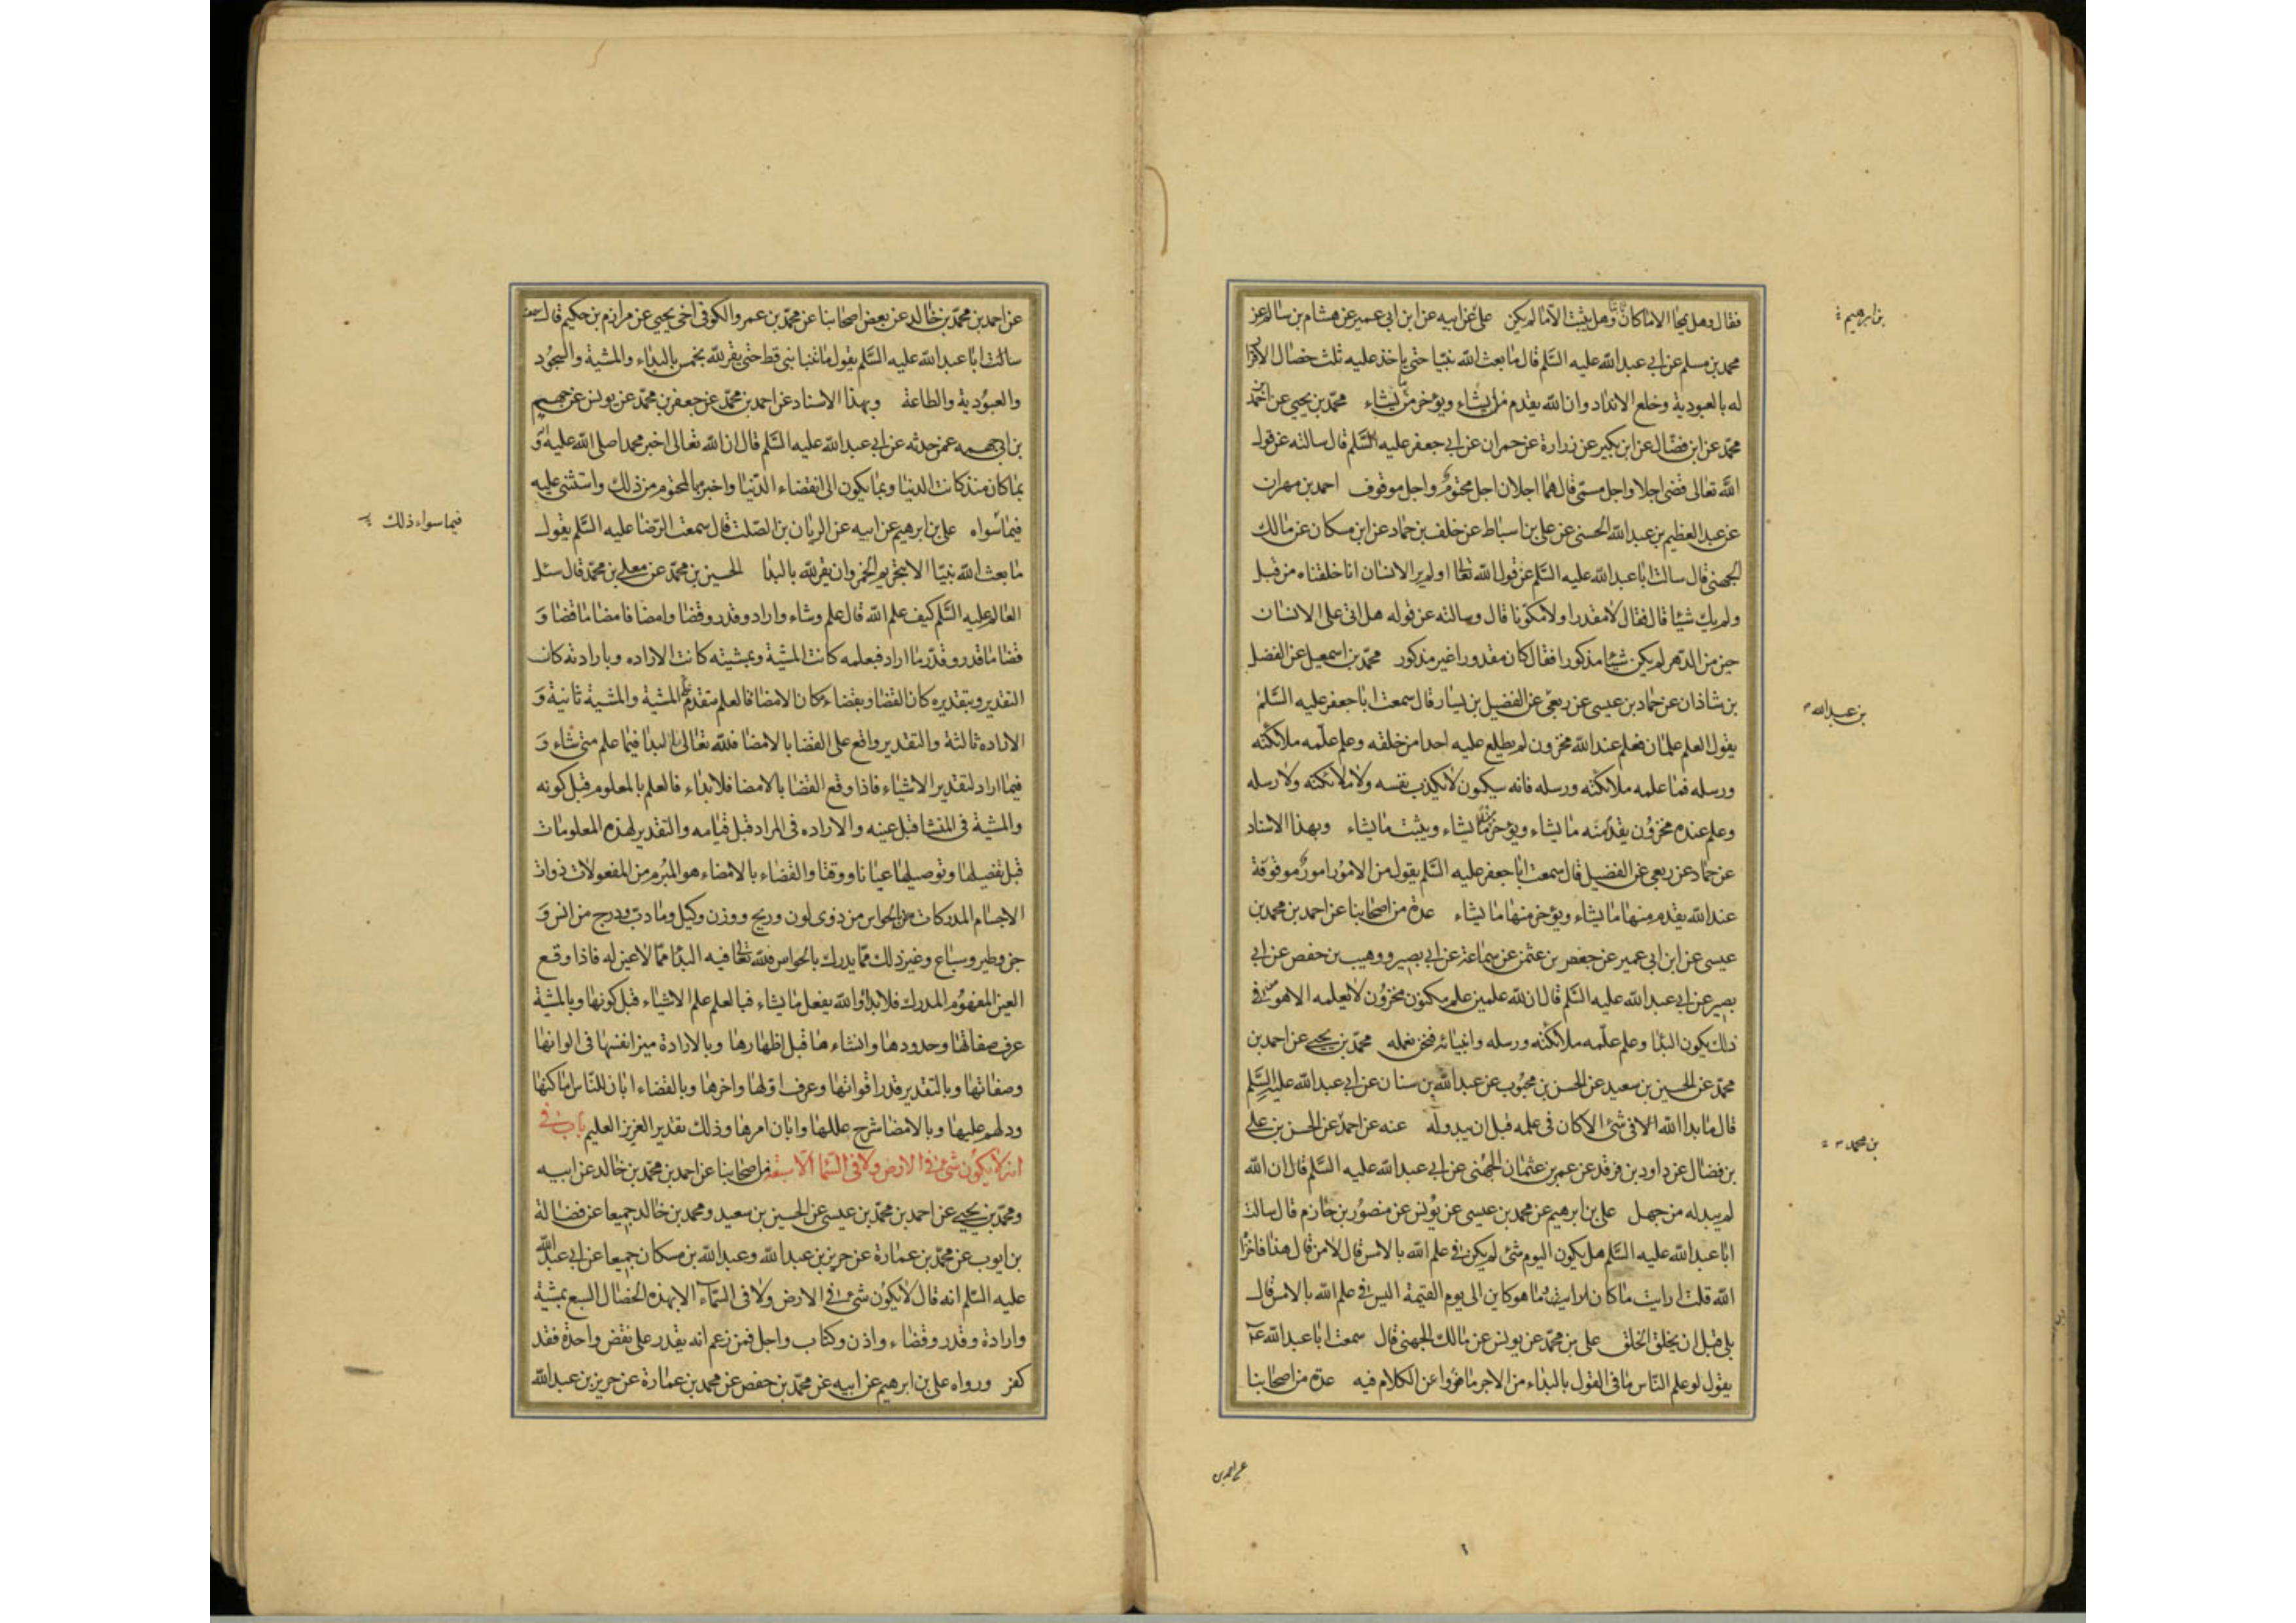 فقال وهل يمحا الا ما كان وهل يثبت الا ما لم يكن علي عن ابيه عن ابن ابي عمير عن هشام بن سالم عن
بن ابرهيم
محمد بن مسلم عن ابي عبد الله عليه السلم قال ما بعث الله نبيا حتى ياخذ عليه ثلث خصال الاقرار
له بالعبودية وخلع الانداد وان الله يقدم ما يشاء ويؤخر من يشاء محمد بن يحيى عن احمد بن
محمد عن ابن فضال عن ابن بكير عن زرارة عن حمران عن ابي جعفر عليه السلم قال سالته عن قول
الله تعالى قضى اجلا واجل مسمى قال هما اجلان اجل محتوم واجل موقوف احمد بن مهران
عن عبد العظيم بن عبد الله الحسنى عن على بن اسباط عن خلف بن حماد عن ابن مسكان عن مالك
الجهنى قال سالت ابا عبد الله عليه السلم عن قول الله تعالى اولم ير الانسان انا خلقناه من قبل
ولم يك شيئا قال فقال لا مقدرا ولا مكونا قال وسالته عن قوله هل اتى على الانسان
حين من الدهر لم يكن شيئا مذكورا فقال كان مقدورا غير مذكور محمد بن اسمعيل عن الفضل
بن شاذان عن حماد بن عيسى عن ربعى عن الفضيل بن يسار قال سمعت ابا جعفر عليه السلم
بن عبد الله
يقول العلم علمان فعلم عند الله مخزون لم يطلع عليه احدا من خلقه وعلم علمه ملائكته
ورسله فما علمه ملائكته ورسله فانه سيكون لا يكذب نفسه ولا ملائكته ولا رسله
وعلم عنده مخزون يقدم منه ما يشاء ويؤخر منه ما يشاء ويثبت ما يشاء وبهذا الاسناد
عن حماد عن ربعى عن الفضيل قال سمعت ابا جعفر عليه السلم يقول من الامور امور موقوفة
عند الله يقدم منها ما يشاء ويؤخر منها ما يشاء عدة من اصحابنا عن احمد بن محمد بن
عيسى عن ابن ابى عمير عن جعفر بن عثمن عن سماعة عن ابي بصير ووهيب بن حفص عن ابي
بصير عن ابي عبد الله عليه السلم قال ان لله علمين علم مكنون مخزون لا يعلمه الا هو من
ذلك يكون البدا وعلم علمه ملائكته ورسله وانبيائه فنحن نعلمه محمد بن يحيى عن احمد بن
محمد عن الحسين بن سعيد عن الحسن بن محبوب عن عبد الله بن سنان عن ابي عبد الله عليه السلم
قال ما بدا لله في شئ الا كان فى علمه قبل ان يبدو له عنه عن احمد عن الحسن بن على
بن محمد
بن فضال عن داود بن فرقد عن عمر بن عثمان الجهنى عن ابي عبد الله عليه السلم قال ان الله
لم يبد له من جهل على بن ابرهيم عن محمد بن عيسى عن يونس عن منصور بن حازم قال سالت
ابا عبد الله عليه السلم هل يكون اليوم شئ لم يكن في علم الله بالامس قال لا من قال هذا فاخزاه
الله قلت ارايت ما كان وما هو كاين الى يوم القيمة اليس في علم الله بالامس قال
بلى قبل ان يخلق الخلق على بن محمد عن يونس عن مالك الجهنى قال سمعت ابا عبد الله
يقول لو علم الناس ما فى القول بالبداء من الاجر ما فتروا عن الكلام فيه عدة من اصحابنا
عن احمد بن
عن احمد بن محمد بن خالد عن بعض اصحابنا عن محمد بن عمرو الكوفى اخى يحيى عن مرازم بن حكيم قال سمعت
سالت ابا عبد الله عليه السلم يقول ما تنبا نبى قط حتى يقر لله بخمس بالبداء والمشية والسجود
والعبودية والطاعة وبهذا الاسناد عن احمد بن محمد عن جعفر بن محمد عن يونس عن جهم
بن ابى جهمه عمن حدثه عن ابي عبد الله عليه السلم قال ان الله تعالى اخبر محمدا صلى الله عليه و
بما كان منذ كانت الدنيا وبما يكون الى انقضاء الدنيا واخبره بالمحتوم من ذلك واستثنى عليه
فيما سواه على بن ابرهيم عن ابيه عن الريان بن الصلت قال سمعت الرضا عليه السلم يقول
فيما سواء ذلك
ما بعث الله نبيا الا بتحريم الخمر وان يقر لله بالبدا الحسين بن محمد عن معلى بن محمد قال سئل
العالم عليه السلم كيف علم الله قال علم وشاء واراد وقدر وقضا وامضا فامضا ما قضا و
قضا ما قدر وقدر ما اراد فبعلمه كانت المشية وبمشيته كانت الاراده وبارادته كان
التقدير وبتقديره كان القضا وبقضاءه كان الامضا فالعلم متقدم المشية والمشية ثانية و
الاراده ثالثة والتقدير واقع على القضا بالامضا فلله تعالى البدا فيما علم متى شاء و
فيما اراد لتقدير الاشياء فاذا وقع القضا بالامضا فلا بداء فالعلم بالمعلوم قبل كونه
والمشية فى المنشا قبل عينه والاراده فى المراد قبل قيامه والتقدير لهذه المعلومات
قبل تفصيلها وتوصيلها عيانا ووقتا والقضاء بالامضاء هو المبرم من المفعولات ذوات
الاجسام المدركات بالحواس من ذوى لون وريح ووزن وكيل وما دب ودرج من انس و
جن وطير وسباع وغير ذلك مما يدرك بالحواس فلله تعالى فيه البدا مما لا عين له فاذا وقع
العين المفهوم المدرك فلا بدا والله يفعل ما يشاء فبالعلم علم الاشياء قبل كونها وبالمشية
عرف صفاتها وحدودها وانشاءها قبل اظهارها وبالارادة ميز انفسها فى الوانها
وصفاتها وبالتقدير قدر اقواتها وعرف اولها واخرها وبالقضاء ابان للناس اماكنها
ودلهم عليها وبالامضا شرح عللها وابان امرها وذلك تقدير العزيز العليم باب في
انه لا يكون شئ في الارض ولا فى السما الا بسبعة من اصحابنا عن احمد بن محمد بن خالد عن ابيه
ومحمد بن يحيى عن احمد بن محمد بن عيسى عن الحسين بن سعيد ومحمد بن خالد جميعا عن فضالة
بن ايوب عن محمد بن عمارة عن حريز بن عبد الله وعبد الله بن مسكان جميعا عن ابي عبد الله
عليه السلم انه قال لا يكون شئ في الارض ولا فى السماء الا بهذه الخصال السبع بمشية
وارادة وقدر وقضاء واذن وكتاب واجل فمن زعم انه يقدر على نقض واحدة فقد
كفر ورواه على بن ابرهيم عن ابيه عن محمد بن حفص عن محمد بن عمارة عن حريز بن عبد الله